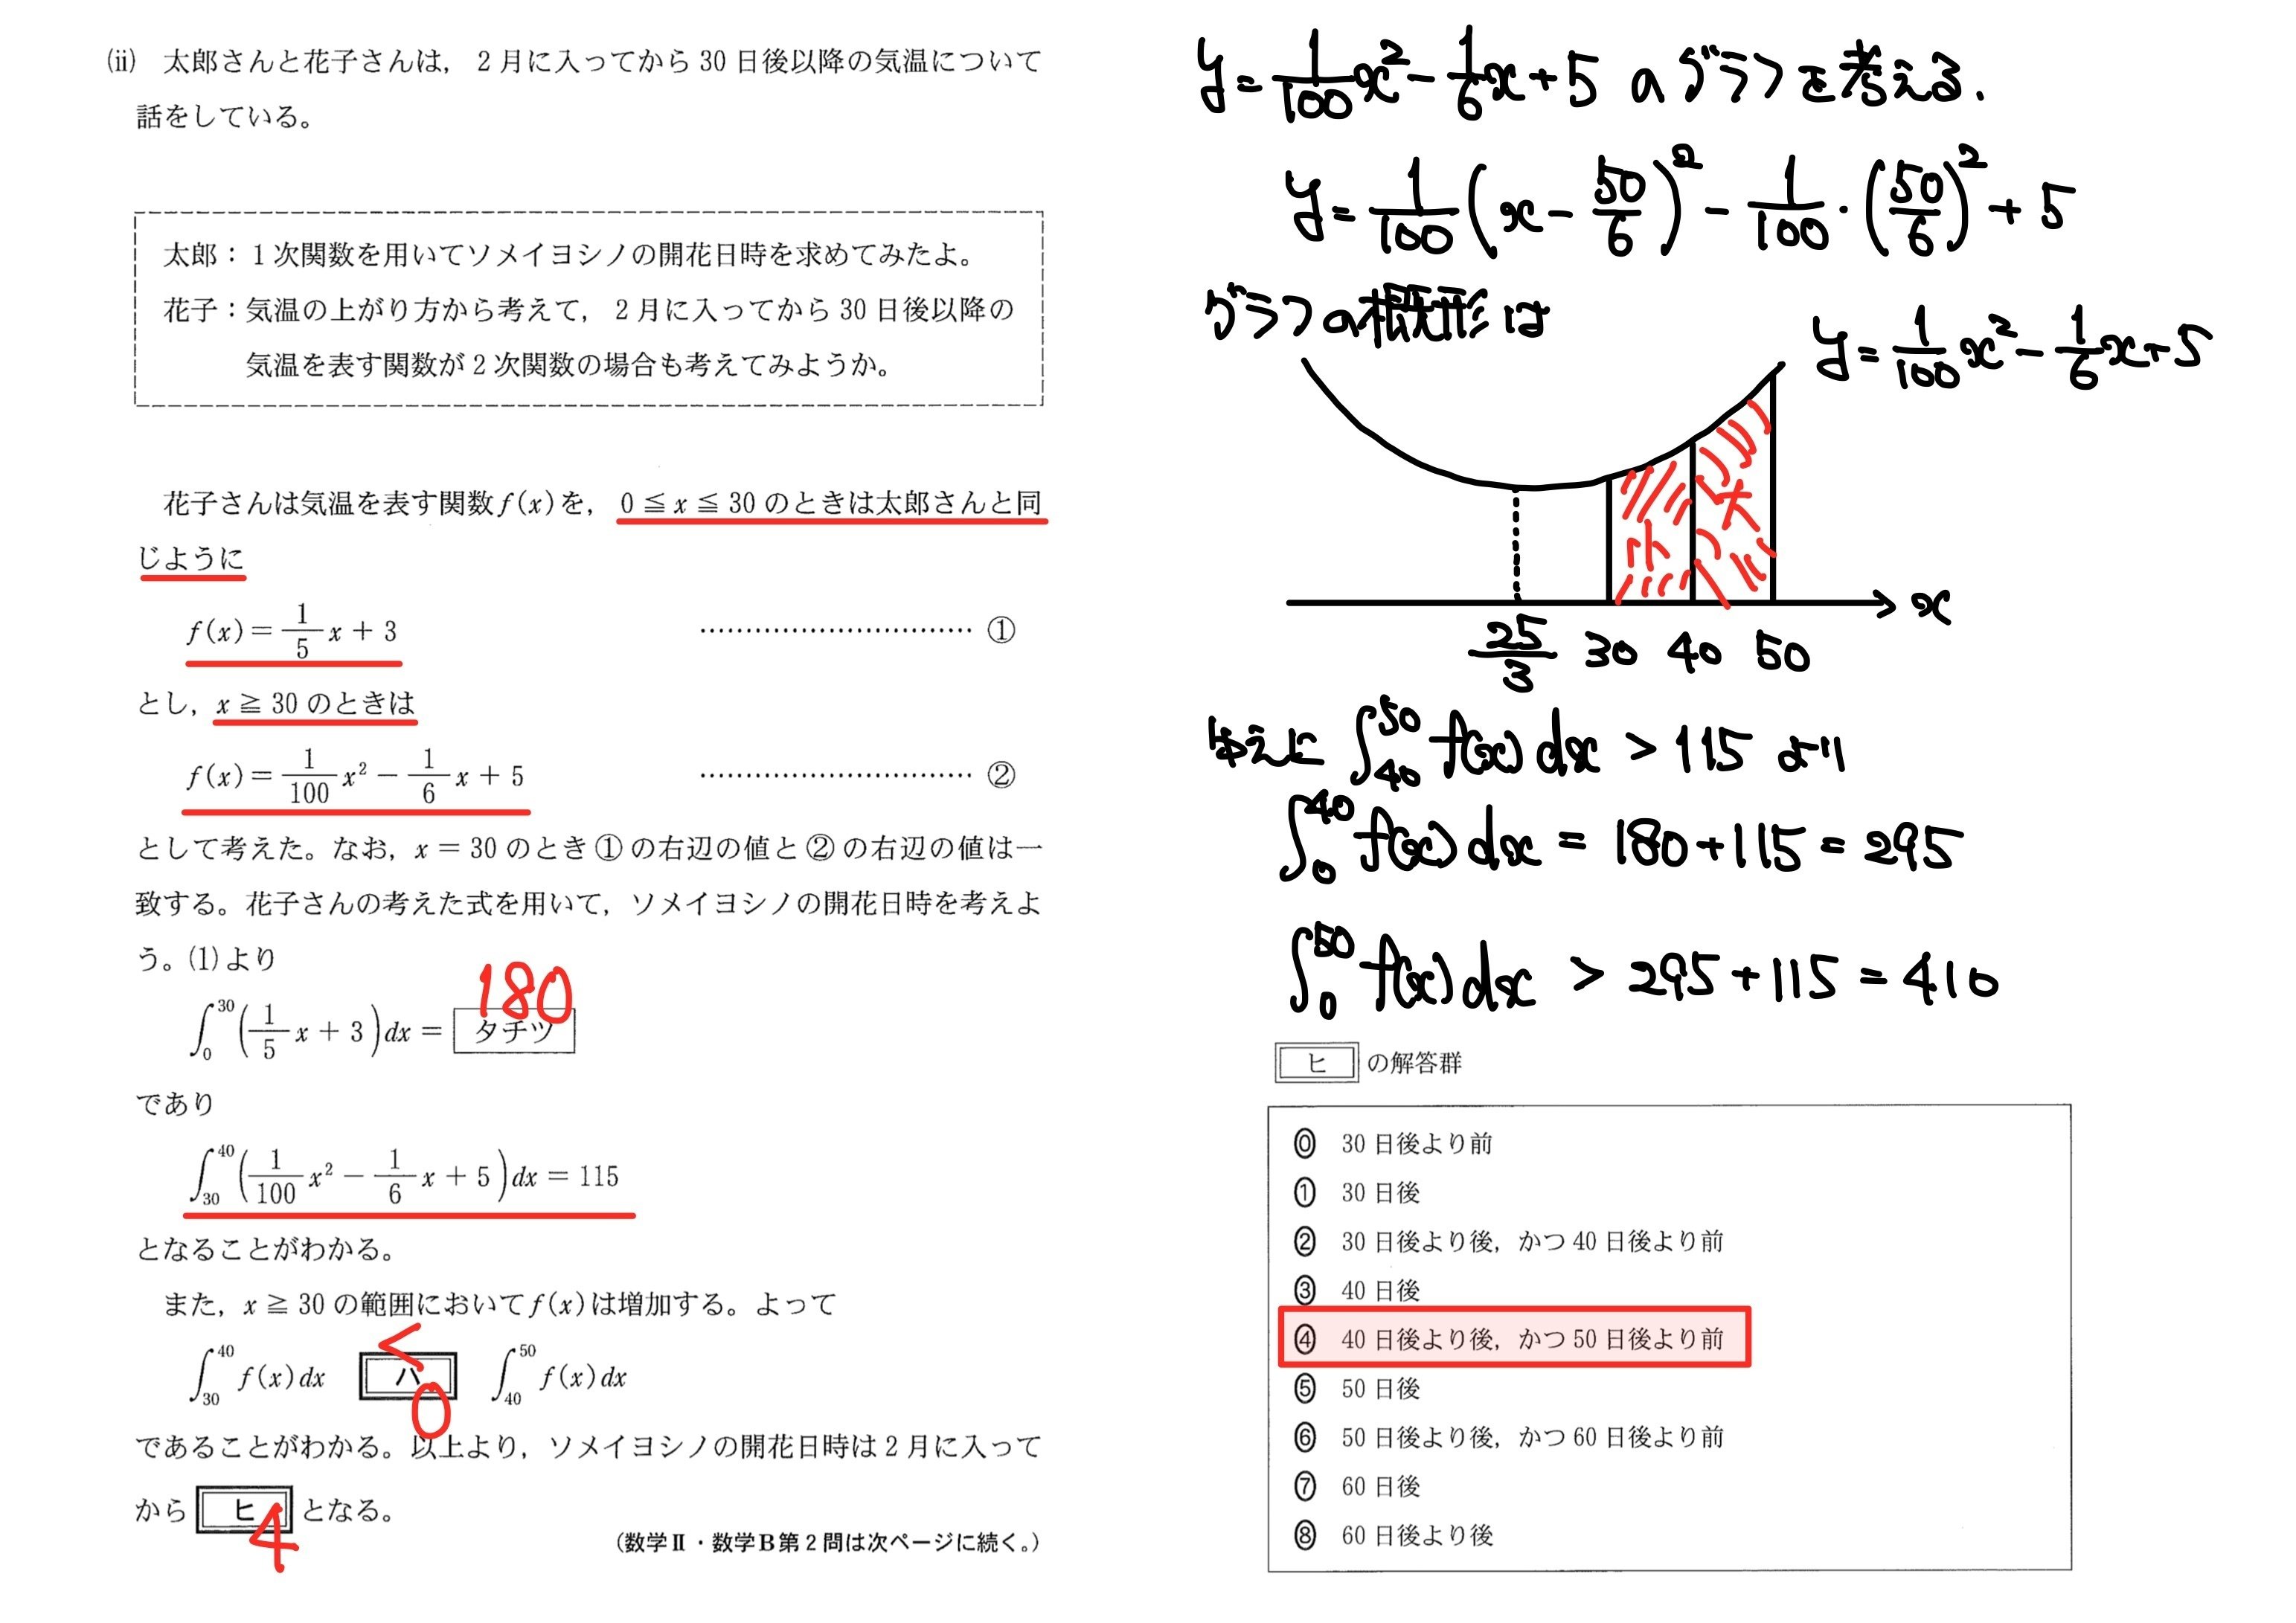 (ii) 太郎さんと花子さんは，2月に入ってから30日後以降の気温について
話をしている。
太郎：1次関数を用いてソメイヨシノの開花日時を求めてみたよ。
花子：気温の上がり方から考えて，2月に入ってから30日後以降の
気温を表す関数が2次関数の場合も考えてみようか。
花子さんは気温を表す関数f(x)を，0≦x≦30のときは太郎さんと同
じように
f(x)=1/5 x+3 ………………………… ①
とし，x≧30のときは
f(x)=1/100 x²−1/6 x+5 ………………………… ②
として考えた。なお，x=30のとき①の右辺の値と②の右辺の値は一
致する。花子さんの考えた式を用いて，ソメイヨシノの開花日時を考えよ
う。(1)より
180
∫₀³⁰(1/5 x+3)dx= タチツ
であり
∫₃₀⁴⁰(1/100 x²−1/6 x+5)dx=115
となることがわかる。
また，x≧30の範囲においてf(x)は増加する。よって
<
∫₃₀⁴⁰f(x)dx ハ ∫₄₀⁵⁰f(x)dx
0
であることがわかる。以上より，ソメイヨシノの開花日時は2月に入って
から ヒ となる。
4
(数学Ⅱ・数学B第2問は次ページに続く。)
y=1/100 x²−1/6 x+5 のグラフを考える.
y=1/100(x−50/6)²−1/100・(50/6)²+5
グラフの概形は
y=1/100 x²−1/6 x+5
小
大
x
25/3 30 40 50
ゆえに ∫₄₀⁵⁰f(x)dx>115 より
∫₀⁴⁰f(x)dx=180+115=295
∫₀⁵⁰f(x)dx>295+115=410
ヒ の解答群
⓪ 30日後より前
① 30日後
② 30日後より後，かつ40日後より前
③ 40日後
④ 40日後より後，かつ50日後より前
⑤ 50日後
⑥ 50日後より後，かつ60日後より前
⑦ 60日後
⑧ 60日後より後